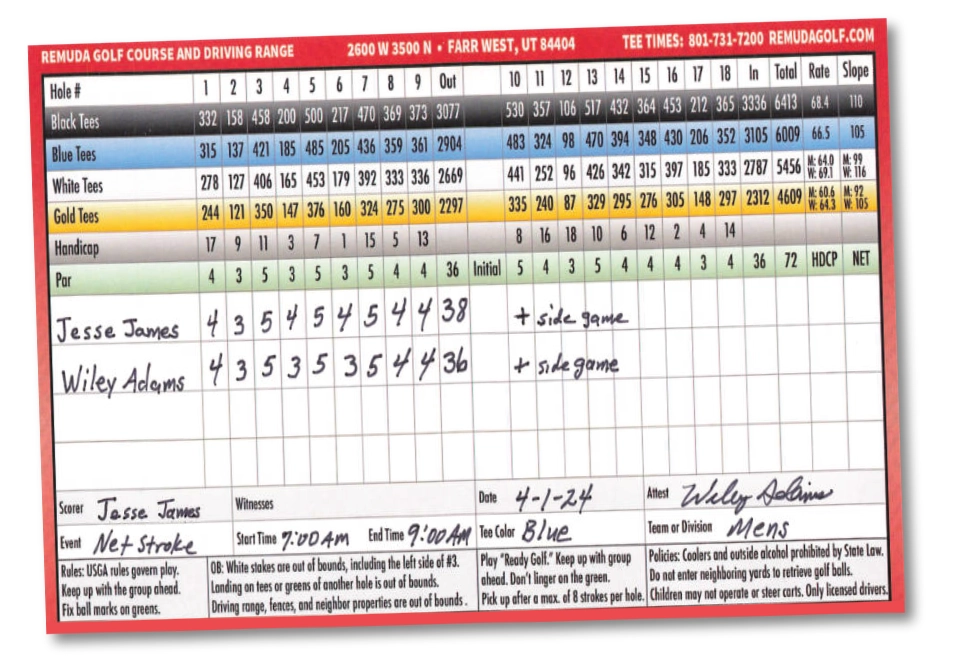 REMUDA GOLF COURSE AND DRIVING RANGE 2600 W 3500 N • FARR WEST, UT 84404 TEE TIMES: 801-731-7200 REMUDAGOLF.COM
Hole # 1 2 3 4 5 6 7 8 9 Out 10 11 12 13 14 15 16 17 18 In Total Rate Slope
Black Tees 332 158 458 200 500 217 470 369 373 3077 530 357 106 517 432 364 453 212 365 3336 6413 68.4 110
Blue Tees 315 137 421 185 485 205 436 359 361 2904 483 324 98 470 394 348 430 206 352 3105 6009 66.5 105
White Tees 278 127 406 165 453 179 392 333 336 2669 441 252 96 426 342 315 397 185 333 2787 5456 M: 64.0 W: 69.1 M: 99 W: 116
Gold Tees 244 121 350 147 376 160 324 275 300 2297 335 240 87 329 295 276 305 148 297 2312 4609 M: 60.6 W: 64.3 M: 92 W: 105
Handicap 17 9 11 3 7 1 15 5 13 8 16 18 10 6 12 2 4 14
Par 4 3 5 3 5 3 5 4 4 36 Initial 5 4 3 5 4 4 4 3 4 36 72 HDCP NET
Jesse James 4 3 5 4 5 4 5 4 4 38 + side game
Wiley Adams 4 3 5 3 5 3 5 4 4 36 + side game
Scorer Jesse James Witnesses Date 4-1-24 Attest Wiley Adams
Event Net Stroke Start Time 7:00 AM End Time 9:00 AM Tee Color Blue Team or Division Mens
Rules: USGA rules govern play.
Keep up with the group ahead.
Fix ball marks on greens.
OB: White stakes are out of bounds, including the left side of #3.
Landing on tees or greens of another hole is out of bounds.
Driving range, fences, and neighbor properties are out of bounds.
Play "Ready Golf." Keep up with group
ahead. Don't linger on the green.
Pick up after a max. of 8 strokes per hole.
Policies: Coolers and outside alcohol prohibited by State Law.
Do not enter neighboring yards to retrieve golf balls.
Children may not operate or steer carts. Only licensed drivers.